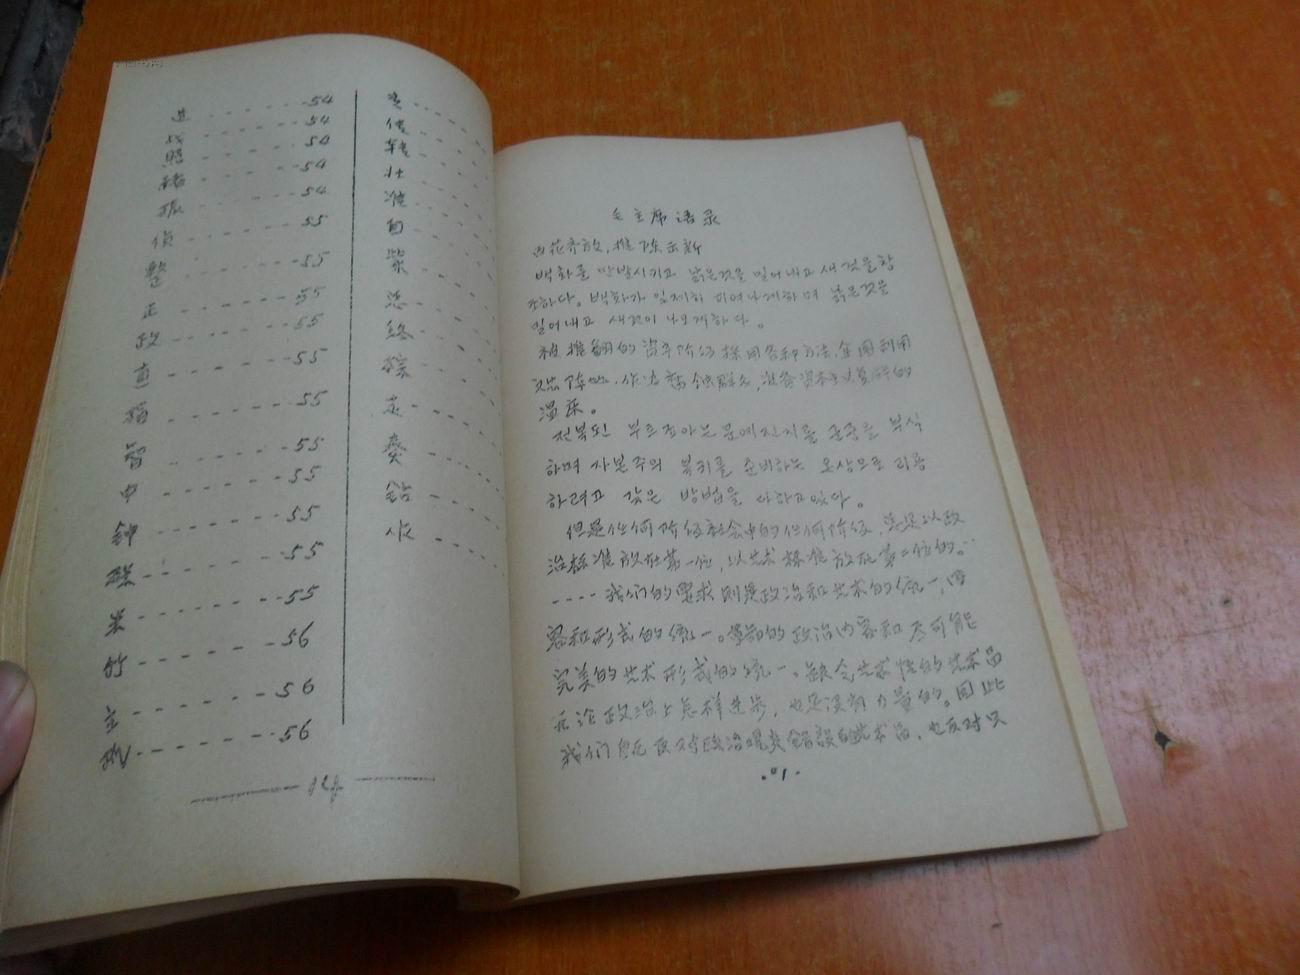 进 - - - - - - 54
战 - - - - - - 54
照 - - - - - - 54
猪 - - - - - - 54
振 - - - - - - 54
侦 - - - - - - 55
整 - - - - - - 55
正 - - - - - - 55
政 - - - - - - 55
直 - - - - - - 55
植 - - - - - - 55
智 - - - - - - 55
中 - - - - - - 55
钟 - - - - - - 55
- - - - - - 55
米 - - - - - - 55
竹 - - - - - - 56
主 - - - - - - 56
- - - - - - 56
传
转
壮
准
自
紫
总
终
棕
走
奏
钻
作
毛主席语录
百花齐放,推陈出新
백화를 만발시키고 낡은것을 밀어내고 새것을 창
조하다。백화가 일제히 피여나게하며 낡은것을
밀어내고 새것이 나오게하다。
被推翻的资产阶级採用各种方法,企图利用
文艺阵地,作为腐蚀群众,准备资本主义复辟的
温床。
전복된 부르죠아는 문예진지를 군중을 부식
하며 자본주의 복귀를 준비하는 온상으로 리용
하려고 갖은 방법을 다하고있다。
但是任何阶级社会中的任何阶级,总是以政
治标准放在第一位,以艺术标准放在第二位的。
----我们的要求则是政治和艺术的统一,内
容和形式的统一。革命的政治内容和尽可能
完美的艺术形式的统一。缺乏艺术性的艺术品
无论政治上怎样进步,也是没有力量的。因此
我们既反对政治观点错误的艺术品,也反对只
·01·